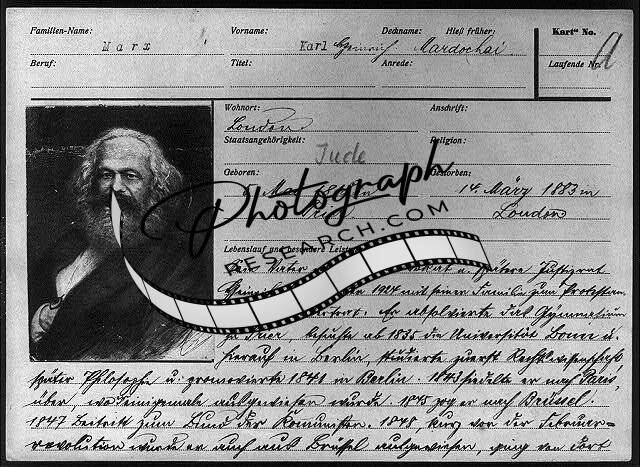 Familien-Name: Vorname: Deckname: Hieß früher: Kartᵉ No.
Marx Karl Heinrich Mardochai a
Beruf: Titel: Anrede: Laufende Nr.
Wohnort: Anschrift:
London
Staatsangehörigkeit: Religion:
Jude
Geboren: Gestorben:
5. Mai 14. März 1883 in
London
Photograph
RESEARCH.COM
Lebenslauf und besondere Leist
Vater u. später Justizrat
1824 mit seiner Familie zum Protestan
Er absolvierte das Gymnasium
zu Trier, besuchte ab 1835 die Universität Bonn u.
hierauf in Berlin, studierte zuerst Rechtswissenschaft
später Philosophie u. promovierte 1841 in Berlin. 1843 siedelte er nach Paris
über, wo ausgewiesen wurde. 1845 zog er nach Brüssel.
1847 Beitritt zum Bund der Kommunisten. 1848, kurz vor der Februar=
revolution wurde er auch aus Brüssel ausgewiesen, ging von dort